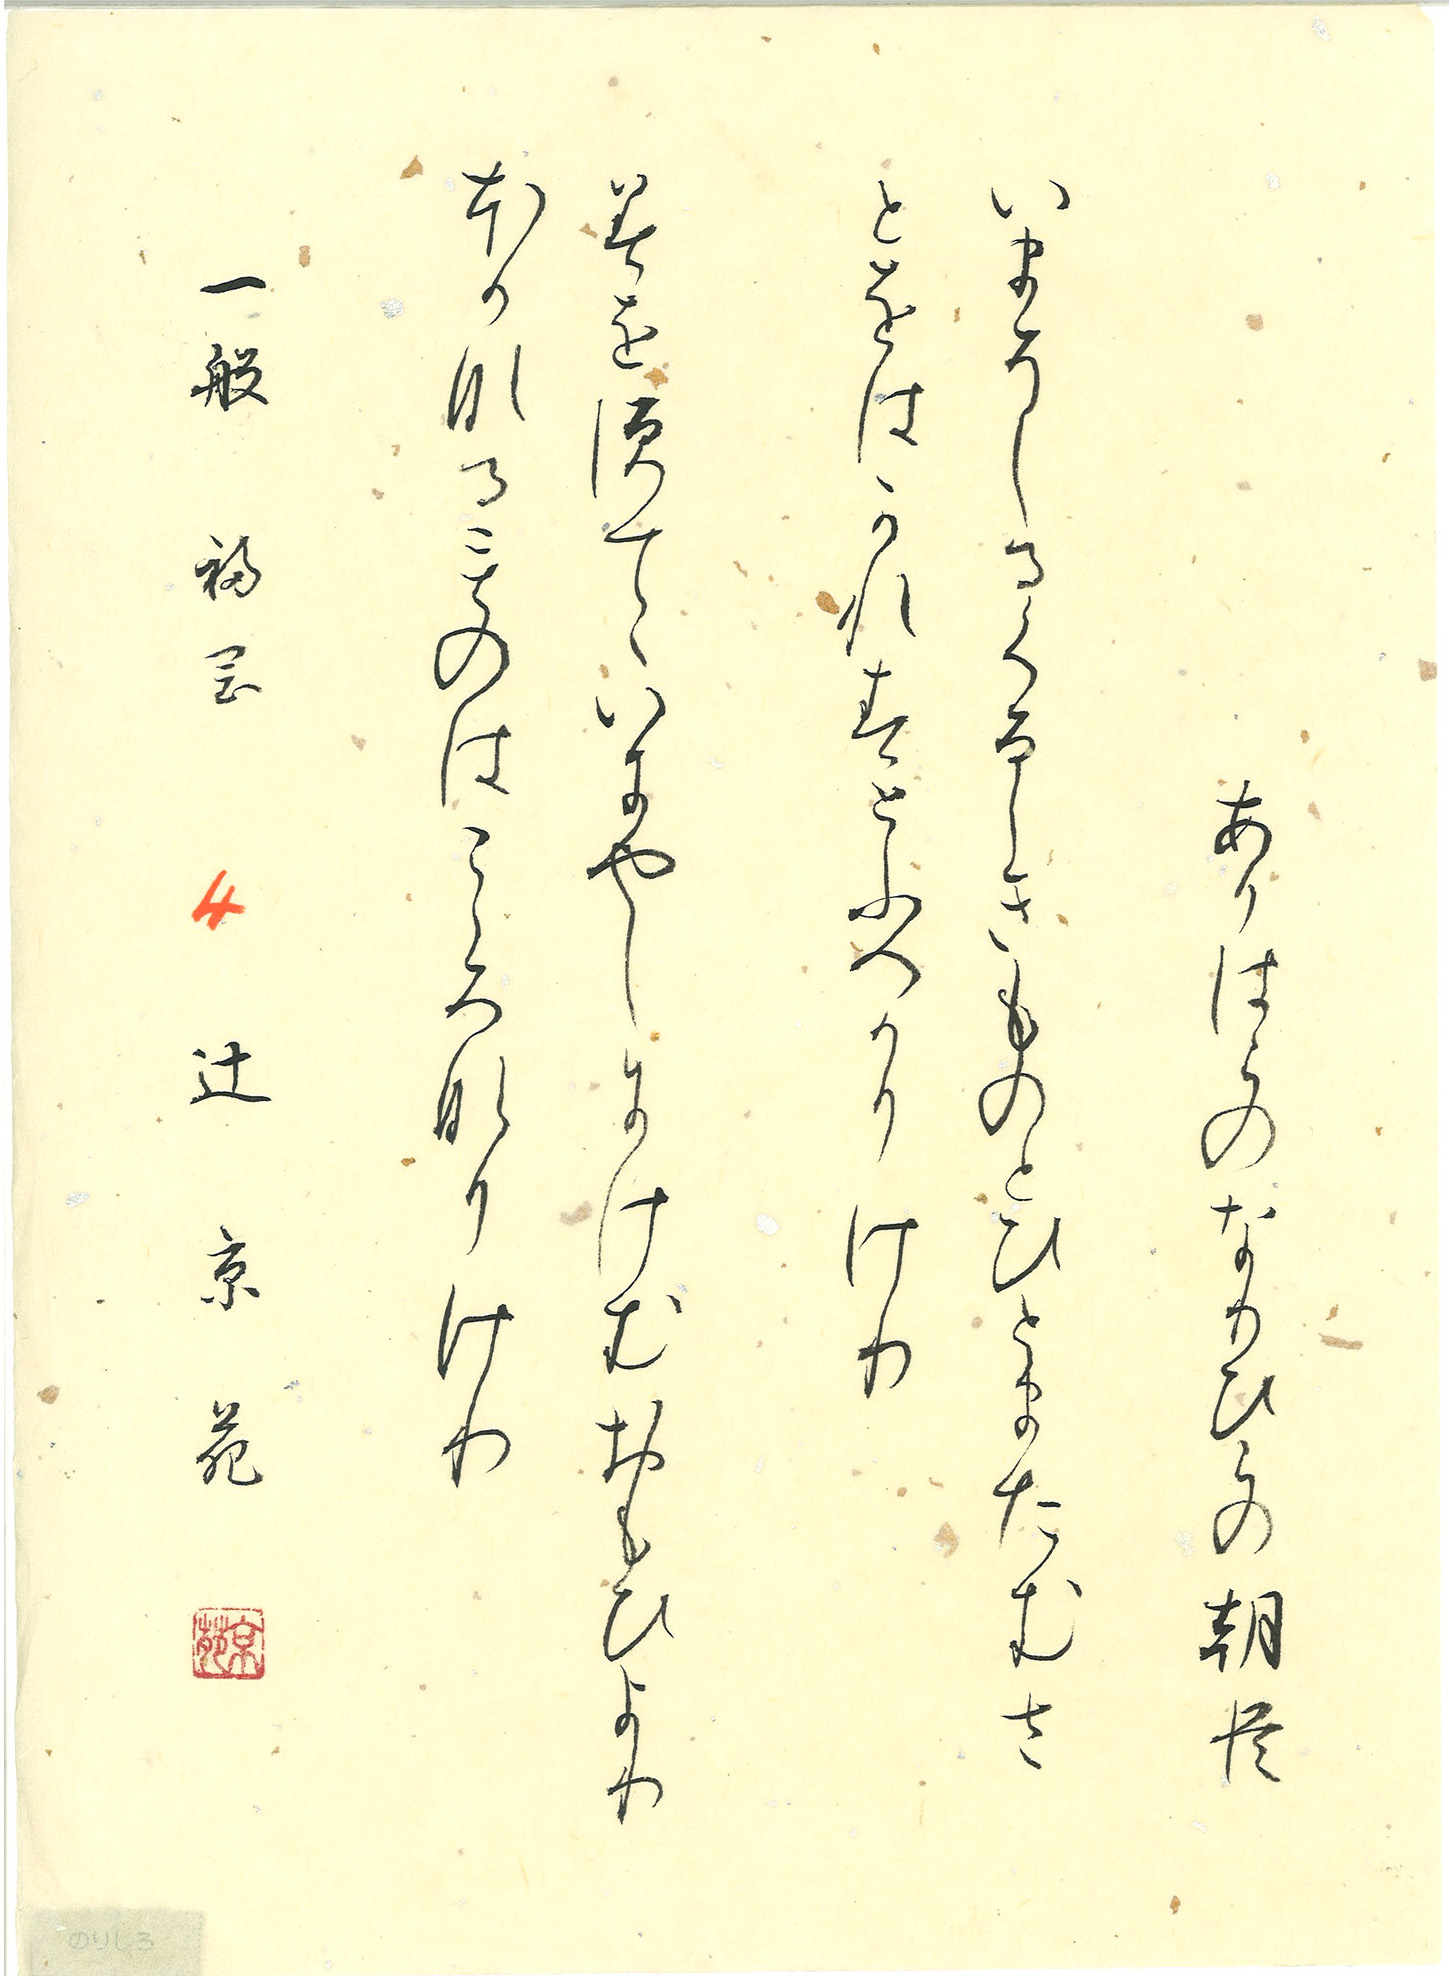 ありはらのなりひらの朝臣
いまそしるくるしきものとひとまたむさ
とをはかれすとふへかりけり
みをすてゝいにやしにけむおもひより
ほかなるものはこころなりけり
一般 福岡 4 辻 京苑
京苑
のりしろ